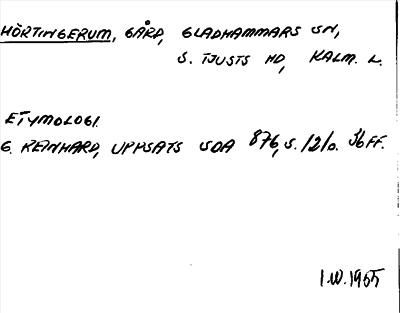 HÖRTINGERUM, GÅRD, GLADHAMMARS SN,
S. TJUSTS HD, KALM. L.
ETYMOLOGI.
G. REINHARD, UPPSATS SOA 876, S. 12 O. 36 FF.
I.W. 1965